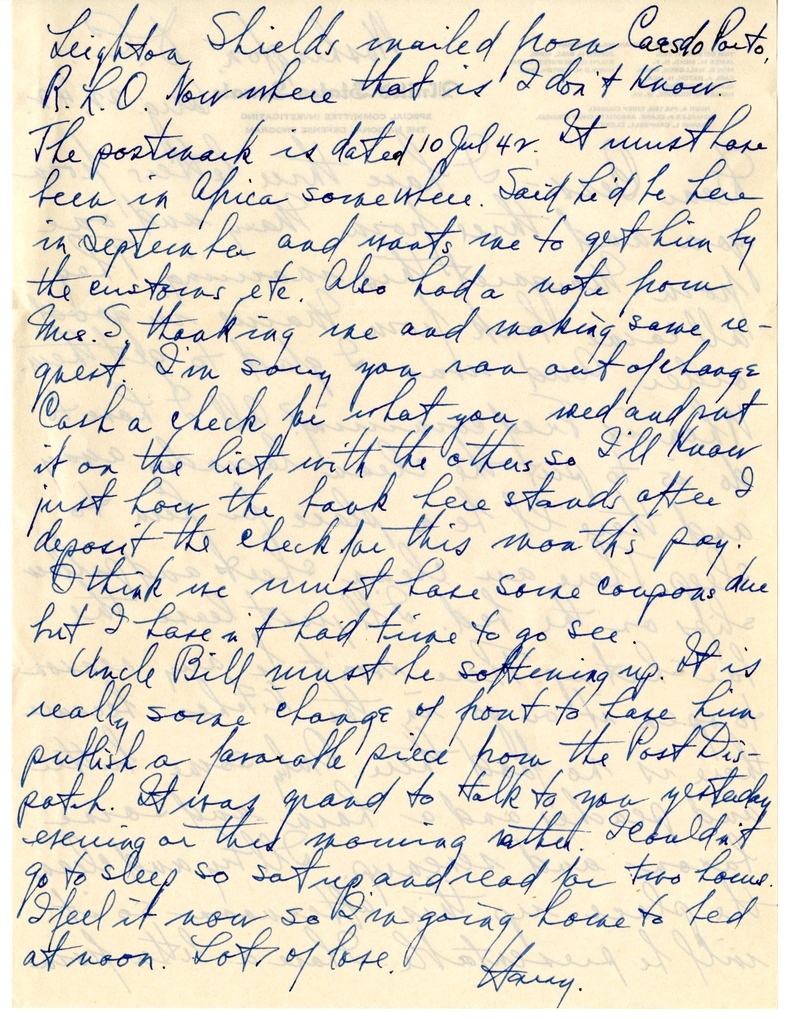 Leighton Shields mailed from Caesdo Porto,
R.L.O. Now where that is I don't know.
The postmark is dated 10 Jul 42. It must have
been in Africa somewhere. Said he'd be here
in September and wants me to get him by
the customs, etc. Also had a note from
Mrs. S. thanking me and making same re-
quest. I'm sorry you ran out of change
Cash a check for what you need and put
it on the list with the others so I'll know
just how the bank here stands after I
deposit the check for this month's pay.
I think we must have some coupons due
but I haven't had time to go see.
Uncle Bill must be softening up. It is
really some change of front to have him
publish a favorable piece from the Post Dis-
patch. It was grand to talk to you yesterday
evening or this morning rather. I couldn't
go to sleep so sat up and read for two hours.
I feel it now so I'm going home to bed
at noon. Lots of love.
Harry.